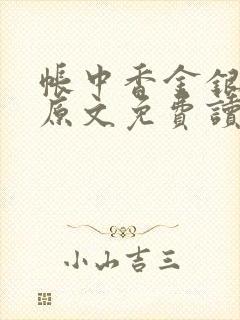 帳中香金銀
原文免費讀
小山吉三